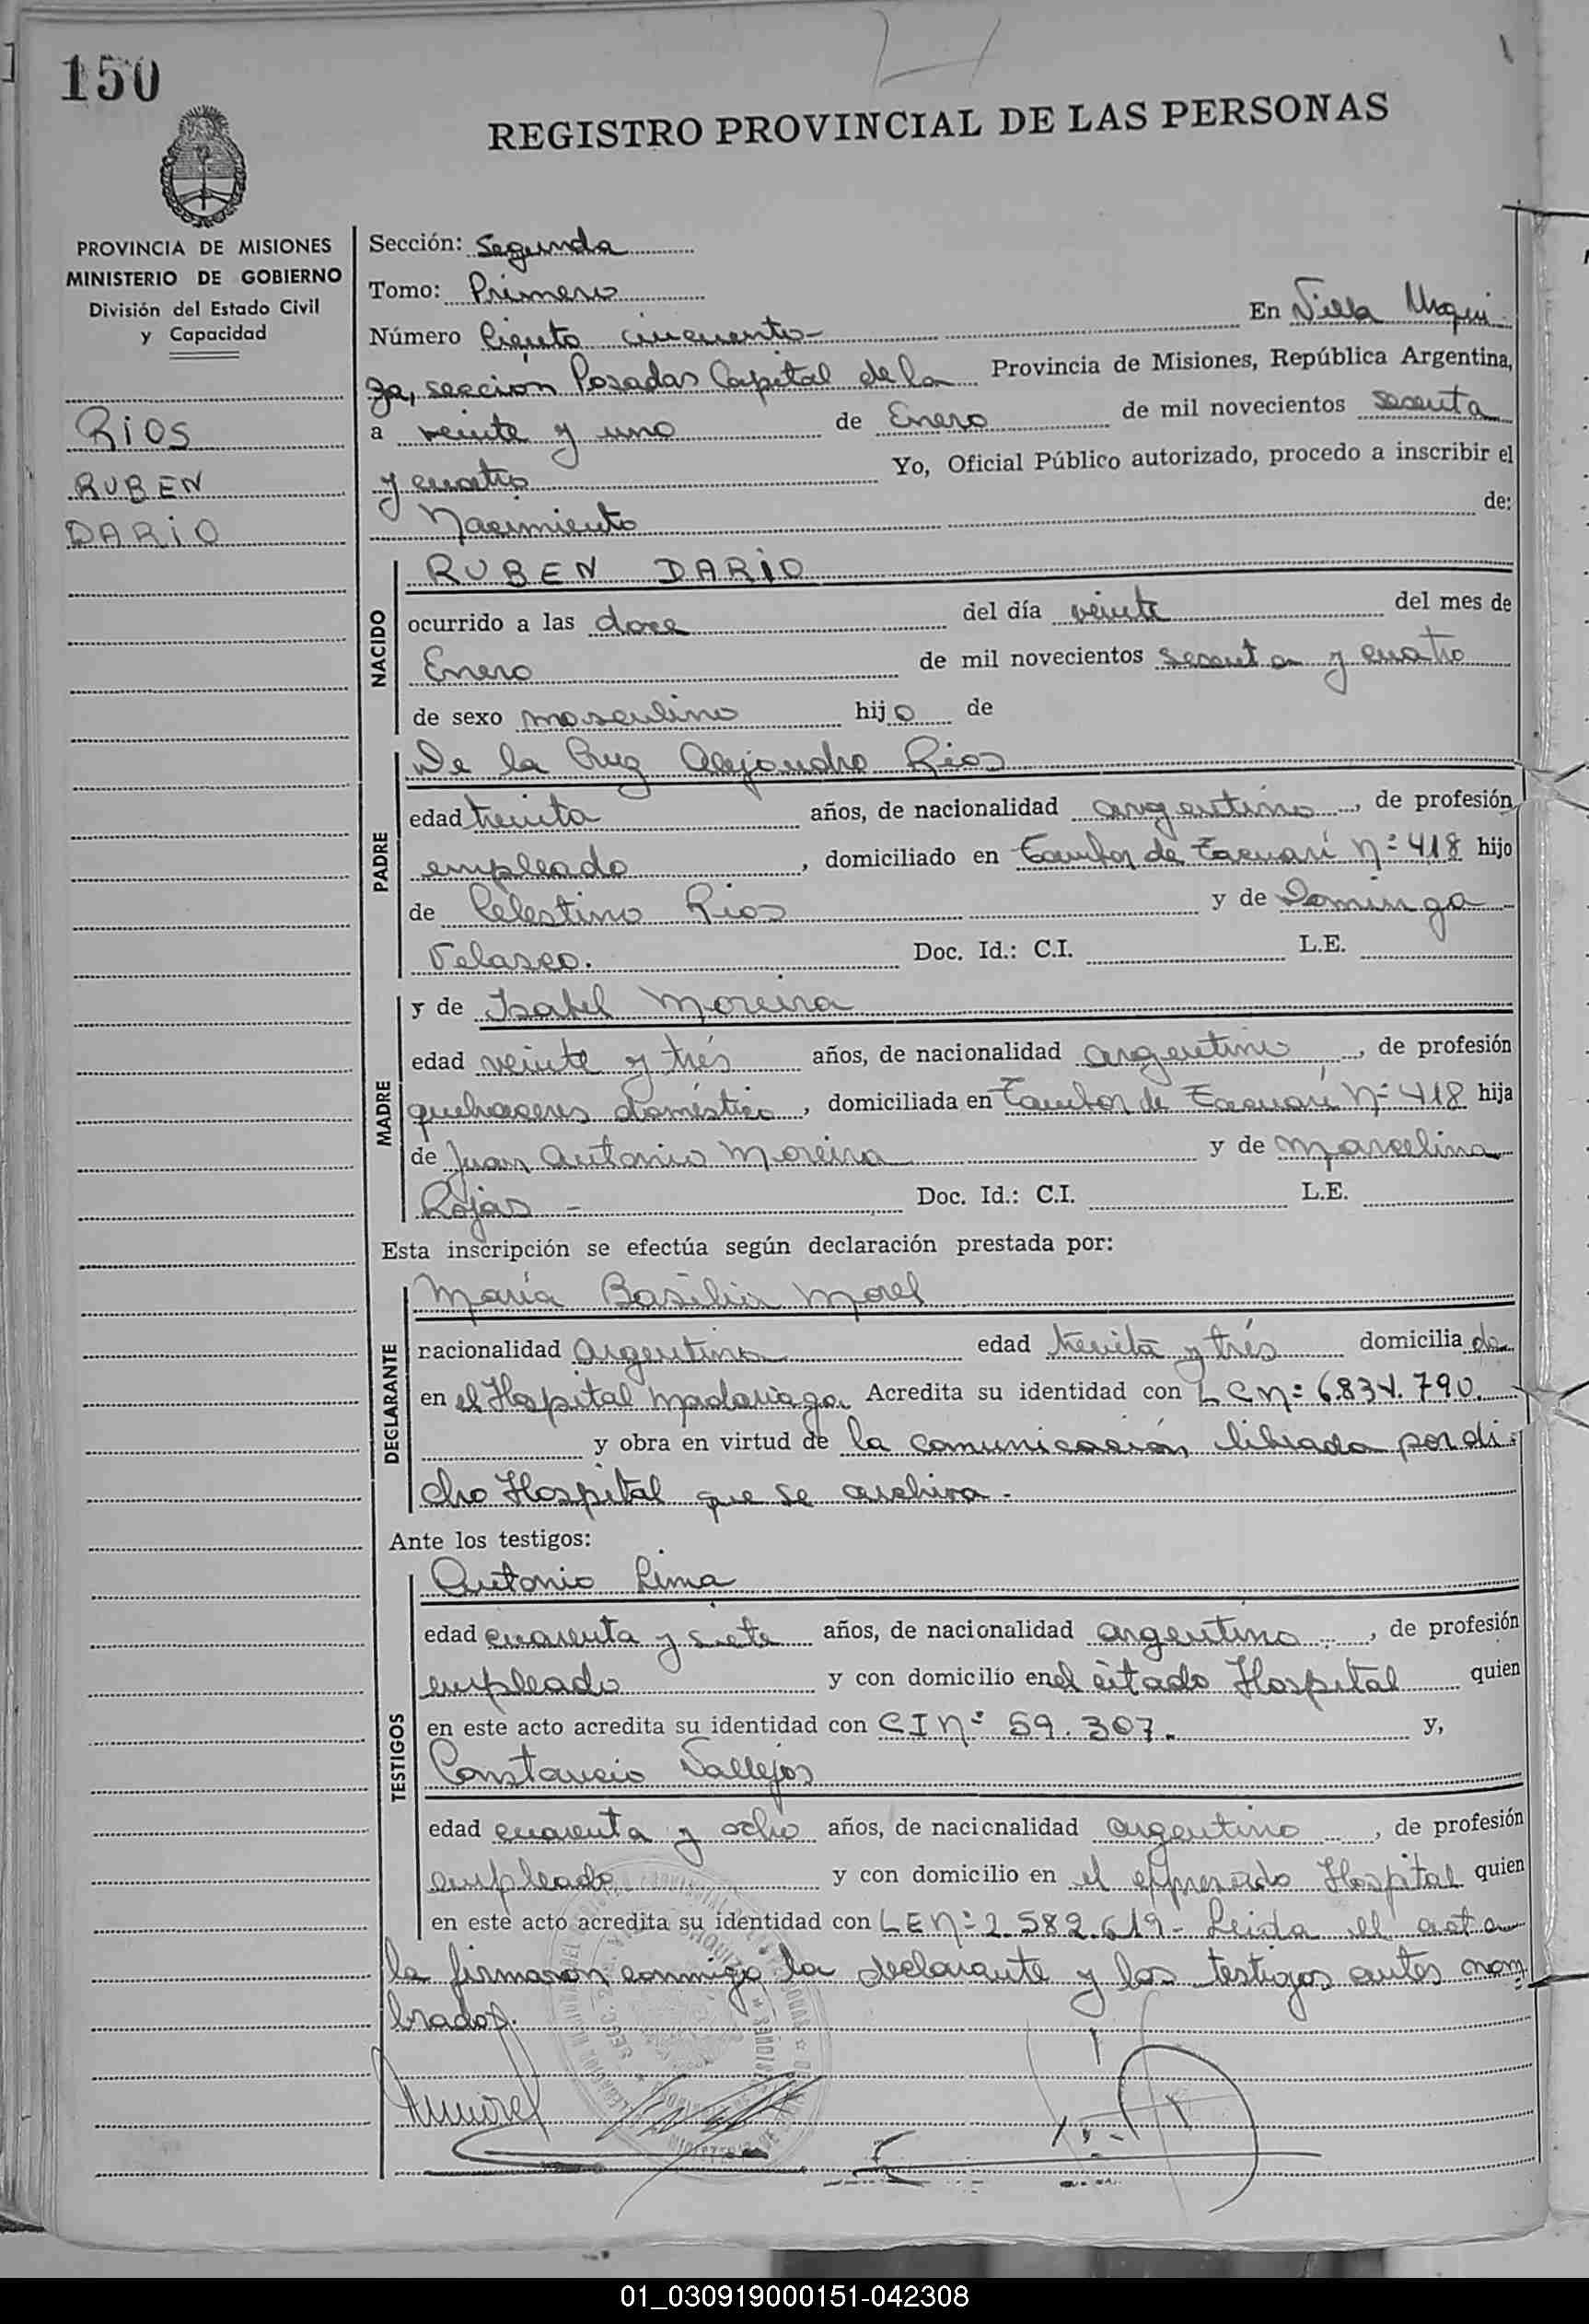 150
REGISTRO PROVINCIAL DE LAS PERSONAS
PROVINCIA DE MISIONES
MINISTERIO DE GOBIERNO
División del Estado Civil
y Capacidad
RIOS
RUBEN
DARIO
Sección: Segunda
Tomo: Primero
Número Ciento cincuenta- En Villa Urqui
za, sección Posadas Capital de la Provincia de Misiones, República Argentina,
a veinte y uno de Enero de mil novecientos sesenta
y cuatro Yo, Oficial Público autorizado, procedo a inscribir el
Nacimiento de:
NACIDO
RUBEN DARIO
ocurrido a las doce del día veinte del mes de
Enero de mil novecientos sesenta y cuatro
de sexo masculino hijo de
PADRE
De la Cruz Alejandro Rios
edad treinta años, de nacionalidad argentino, de profesión
empleado, domiciliado en Tambor de Tacuarí Nº 418 hijo
de Celestino Rios y de Dominga
Velasco. Doc. Id.: C.I. L.E.
MADRE
y de Isabel Moreira
edad veinte y trés años, de nacionalidad argentina, de profesión
quehaceres doméstico, domiciliada en Tambor de Tacuarí Nº 418 hija
de Juan Antonio Moreira y de Marcelina
Rojas - Doc. Id.: C.I. L.E.
Esta inscripción se efectúa según declaración prestada por:
DECLARANTE
María Basilia Morel
nacionalidad Argentina edad treinta y trés domicilia da
en el Hospital Madariaga. Acredita su identidad con LC Nº 6.834.790.
y obra en virtud de la comunicación, librada por di
cho Hospital que se archiva.-
Ante los testigos:
TESTIGOS
Antonio Lima
edad cuarenta y siete años, de nacionalidad argentino, de profesión
empleado y con domicilio en el citado Hospital quien
en este acto acredita su identidad con CI Nº 59.307. y,
Constancio Vallejos
edad cuarenta y ocho años, de nacionalidad argentino, de profesión
empleado y con domicilio en el expresado Hospital quien
en este acto acredita su identidad con LE Nº 2.582.619- Leida el acta
la firmaron conmigo la declarante y los testigos antes nom
brados.
01_030919000151-042308